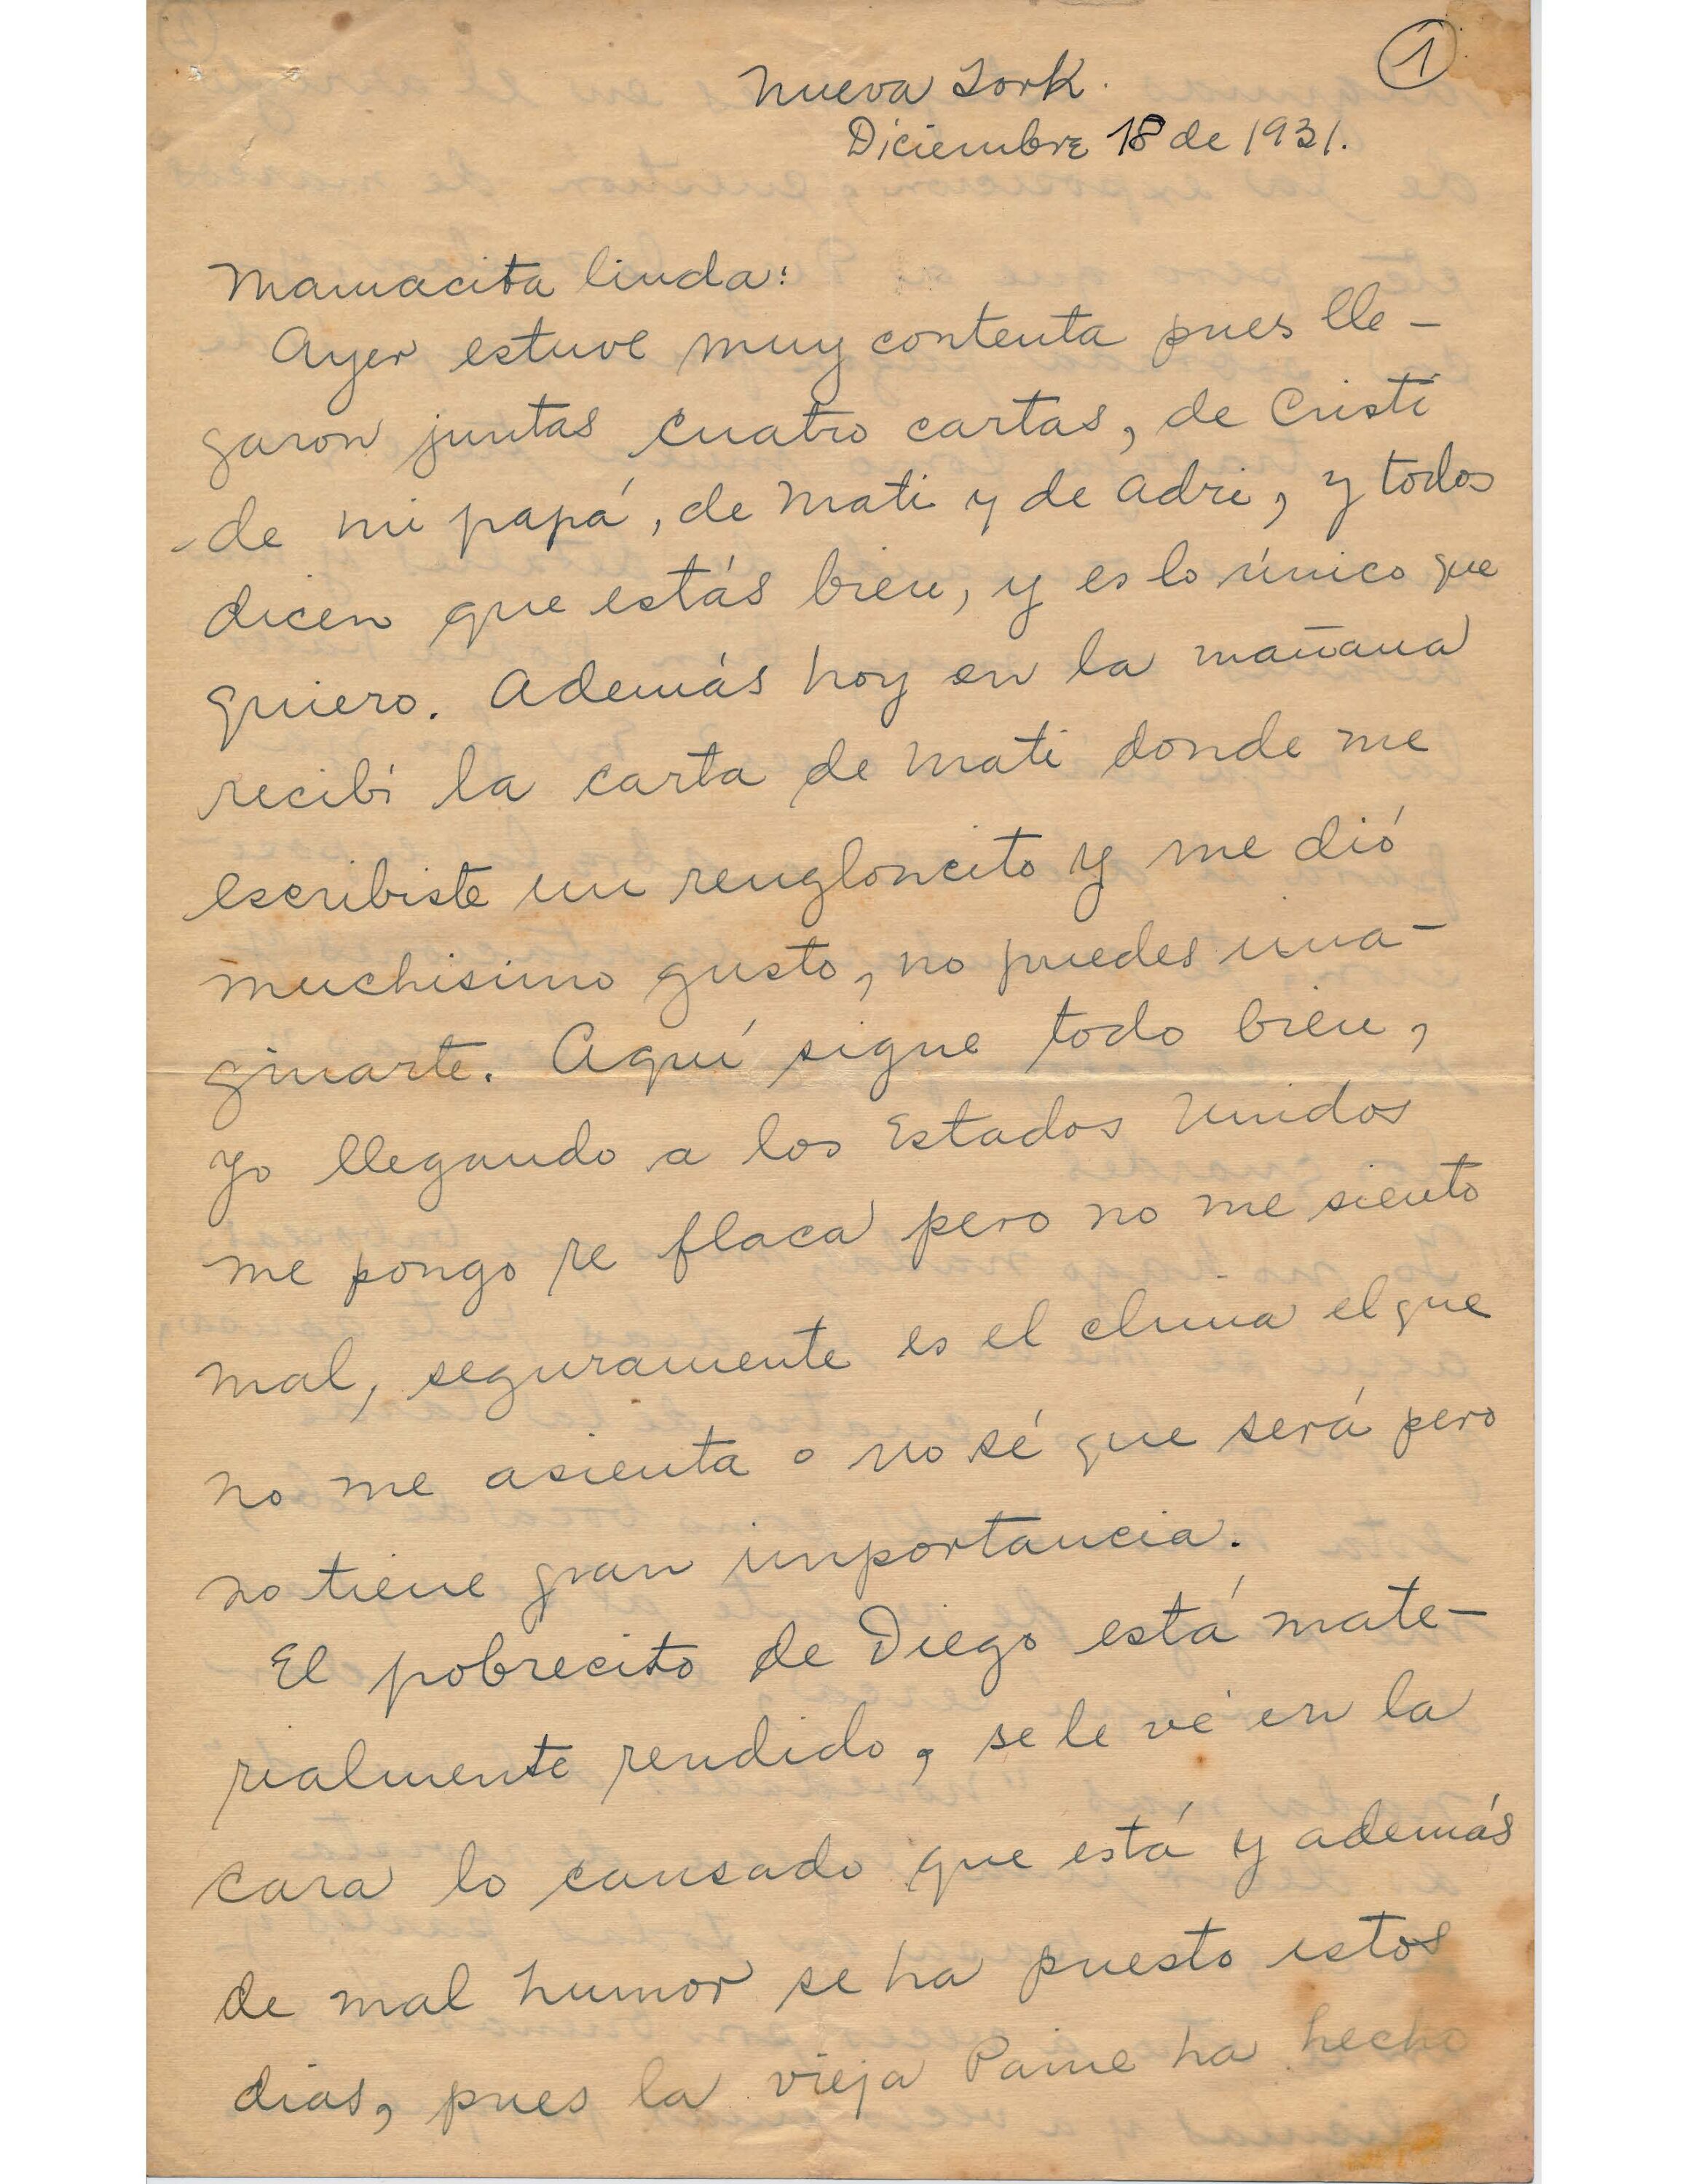 1
Nueva York.
Diciembre 18 de 1931.
Mamacita linda:
Ayer estuve muy contenta pues lle-
garon juntas cuatro cartas, de Cristi
de mi papá, de Mati y de Adri, y todos
dicen que estás bien, y es lo único que
quiero. Además hoy en la mañana
recibí la carta de Mati donde me
escribiste un rengloncito y me dió
muchisimo gusto, no puedes ima-
ginarte. Aquí sigue todo bien,
yo llegando a los Estados Unidos
me pongo re flaca pero no me siento
mal, seguramente es el clima el que
no me asienta o no sé que será pero
no tiene gran importancia.
El pobrecito de Diego está mate-
rialmente rendido, se le vé en la
cara lo cansado que está y además
de mal humor se ha puesto estos
dias, pues la vieja Paine ha hecho